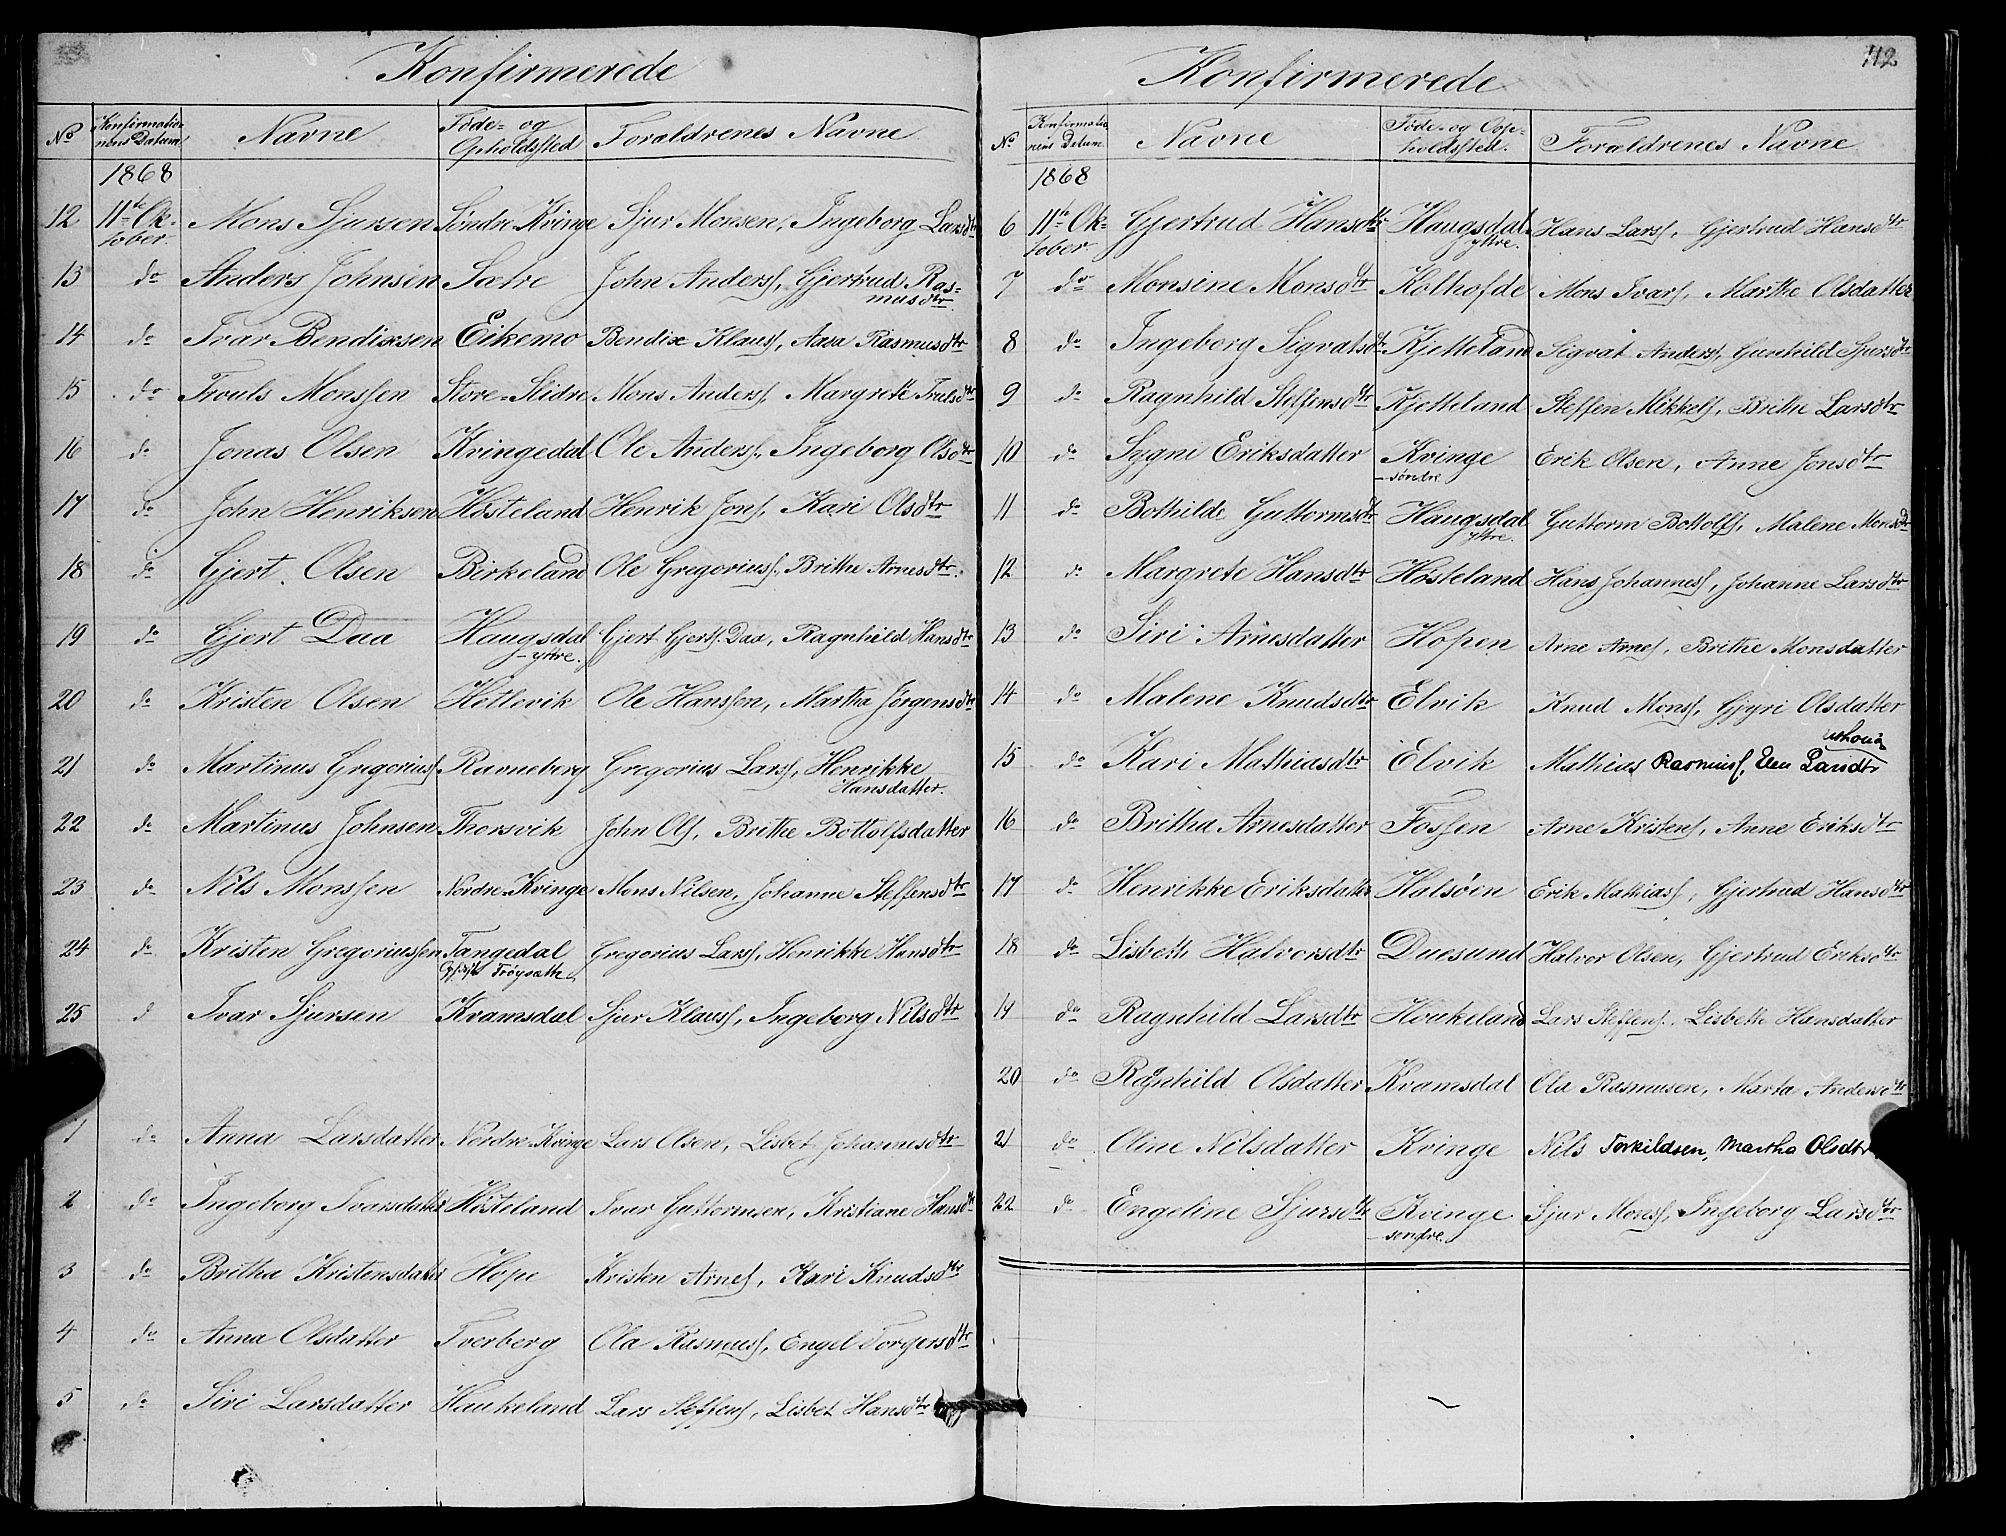 Konfirmerede
No Konfirmatio- Navne Føde- og Forældrenes Navne
nens Datum Opholdssted
1868
12 11te Ok- Mons Sjursen Søndre Kvinge Sjur Monsen, Ingeborg Larsdtr
tober
13 do Anders Johnsen Sætre John Anders., Gjertrud Ras-
musdtr
14 do Ivar Bendixsen Eikemo Bendix Klaus., Aasa Rasmusdtr
15 do Trouls Monssen Store-Steidre Mons Anders. Margrete Trulsdtr
16 do Jonas Olsen Kvingedal Ole Anders., Ingeborg Olsdtr
17 do John Henriksen Høsteland Henrik Jons., Kari Olsdtr
18 do Gjert Olsen Birkeland Ole Gregorius., Brithe Arnesdtr.
19 do Gjert Daa Haugsdal Gjert Gjerts. Daa, Ragnhild Hansdtr
yttre.
20 do Kristen Olsen Hetlevik Ole Hanssen, Martha Jörgensdtr
21 do Martinus Gregorius. Ravneberg Gregorius Lars., Henrikke
Hansdatter.
22 do Martinus Johnsen Thorsvik John Ols., Brithe Bottolfsdatter
23 do Nils Monssen Nordre Kvinge Mons Nilsen, Johanne Steffensdtr
24 do Kristen Gregoriussen Tangedal Gregorius Lars., Henrikke Hansdtr
25 d Ivar Sjursen Kvamsdal Sjur Klaus., Ingeborg Nilsdtr
1 do Anna Larsdatter Nordre Kvinge Lars Olsen, Lisbet Johannesdtr
2 do Ingeborg Ivarsdatter Høsteland Ivar Guttormsen, Kristiane Hansdtr
3 do Brithe Kristensdatter Hope Kristen Arnes., Kari Knudsdtr
4 do Anna Olsdatter Tverberg Ola Rasmus., Engel Torgersdtr
5 do Siri Larsdatter Haukeland Lars Steffens., Lisbet Hansdtr
Konfirmerede
112
No Konfirmatio- Navne Føde- og Op- Forældrenes Navne
nens Datum holdssted.
1868
6 11te Ok- Gjertrud Hansdtr Haugsdal Hans Lars., Gjertrud Hansdtr
tober yttre.
7 do Monsine Monsdtr Kolhofde Mons Ivars., Marthe Olsdatter
8 do Ingeborg Sigvatsdtr Kjetteland Sigvat Anders., Gunhild Sjursdtr
9 do Ragnhild Steffensdtr Kjetteland Steffen Mikkels., Brithe Larsdtr
10 do Sygni Eriksdatter Kvinge Erik Olsen, Anne Jonsdtr
søndre
11 do Bothilde Guttormsdtr Haugsdal Guttorm Bottolfs., Malene Monsdtr
yttre.
12 do Margrete Hansdtr Høsteland Hans Johannes., Johanne Larsdtr
13 do Siri Arnesdatter Hopen Arne Arnes., Brithe Monsdatter
14 do Malene Knudsdtr Elvik Knud Mons., Gjyri Olsdatter
15 do Kari Mathiasdtr Elvik Mathias Rasmus., Elen Larsdtr
16 do Britha Arnesdatter Fossen Arne Kristens., Anne Eriksdtr
17 do Henrikke Eriksdatter Halsöen Erik Mathias., Gjertrud Hansdtr
18 do Lisbeth Halvorsdtr Duesund Halvor Olsen, Gjertrud Eriksdtr
19 do Ragnhild Larsdtr Houkeland Lars Steffens., Lisbeth Hansdatter
20 do Ragnhild Olsdatter Kvamsdal Ola Rasmusen, Marta Andersdtr
21 do Oline Nilsdatter Kvinge Nils Torkildsen, Martha Olsdtr
22 do Engeline Sjursdtr Kvinge Sjur Mons., Ingeborg Larsdtr
søndre.